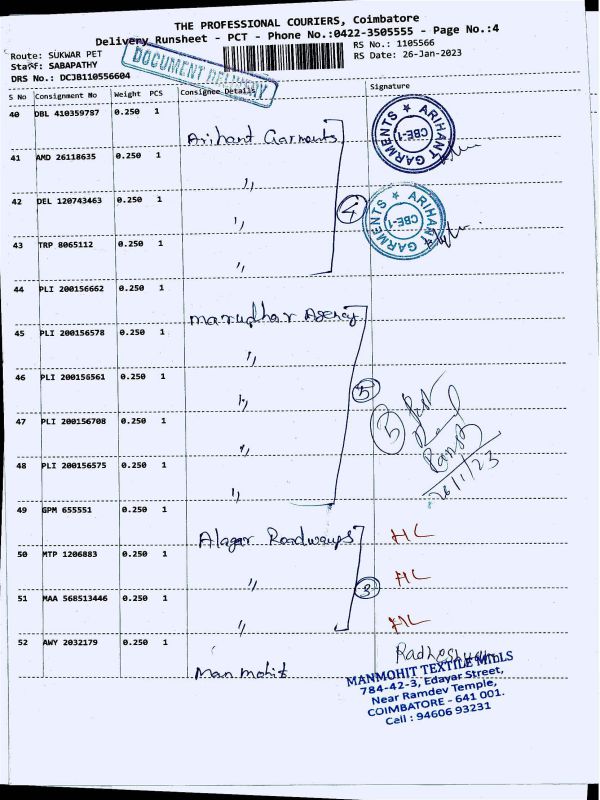 THE PROFESSIONAL COURIERS, Coimbatore
Delivery Runsheet - PCT - Phone No.:0422-3505555 - Page No.:4
Route: SUKWAR PET
RS No.: 1105566
Staff: SABAPATHY
RS Date: 26-Jan-2023
DRS No.: DCJB110556604
DOCUMENT DELIVERY
S No Consignment No Weight PCS Consignee Details Signature
40 DBL 410359787 0.250 1
Arihant Garments
ARIHANT GARMENTS CBE-1
41 AMD 26118635 0.250 1
"
42 DEL 120743463 0.250 1
"
4
ARIHANT GARMENTS CBE-1
43 TRP 8065112 0.250 1
"
44 PLI 200156662 0.250 1
Marudhar Agency
45 PLI 200156578 0.250 1
"
46 PLI 200156561 0.250 1
"
5
47 PLI 200156708 0.250 1
"
48 PLI 200156575 0.250 1
"
26/1/23
49 GPM 655551 0.250 1
Alagar Roadways
HL
50 MTP 1206883 0.250 1
"
3
HL
51 MAA 568513446 0.250 1
"
HL
52 AWY 2032179 0.250 1
Manmohit
MANMOHIT TEXTILE MILLS
784-42-3, Edayar Street,
Near Ramdev Temple,
COIMBATORE - 641 001.
Cell : 94606 93231